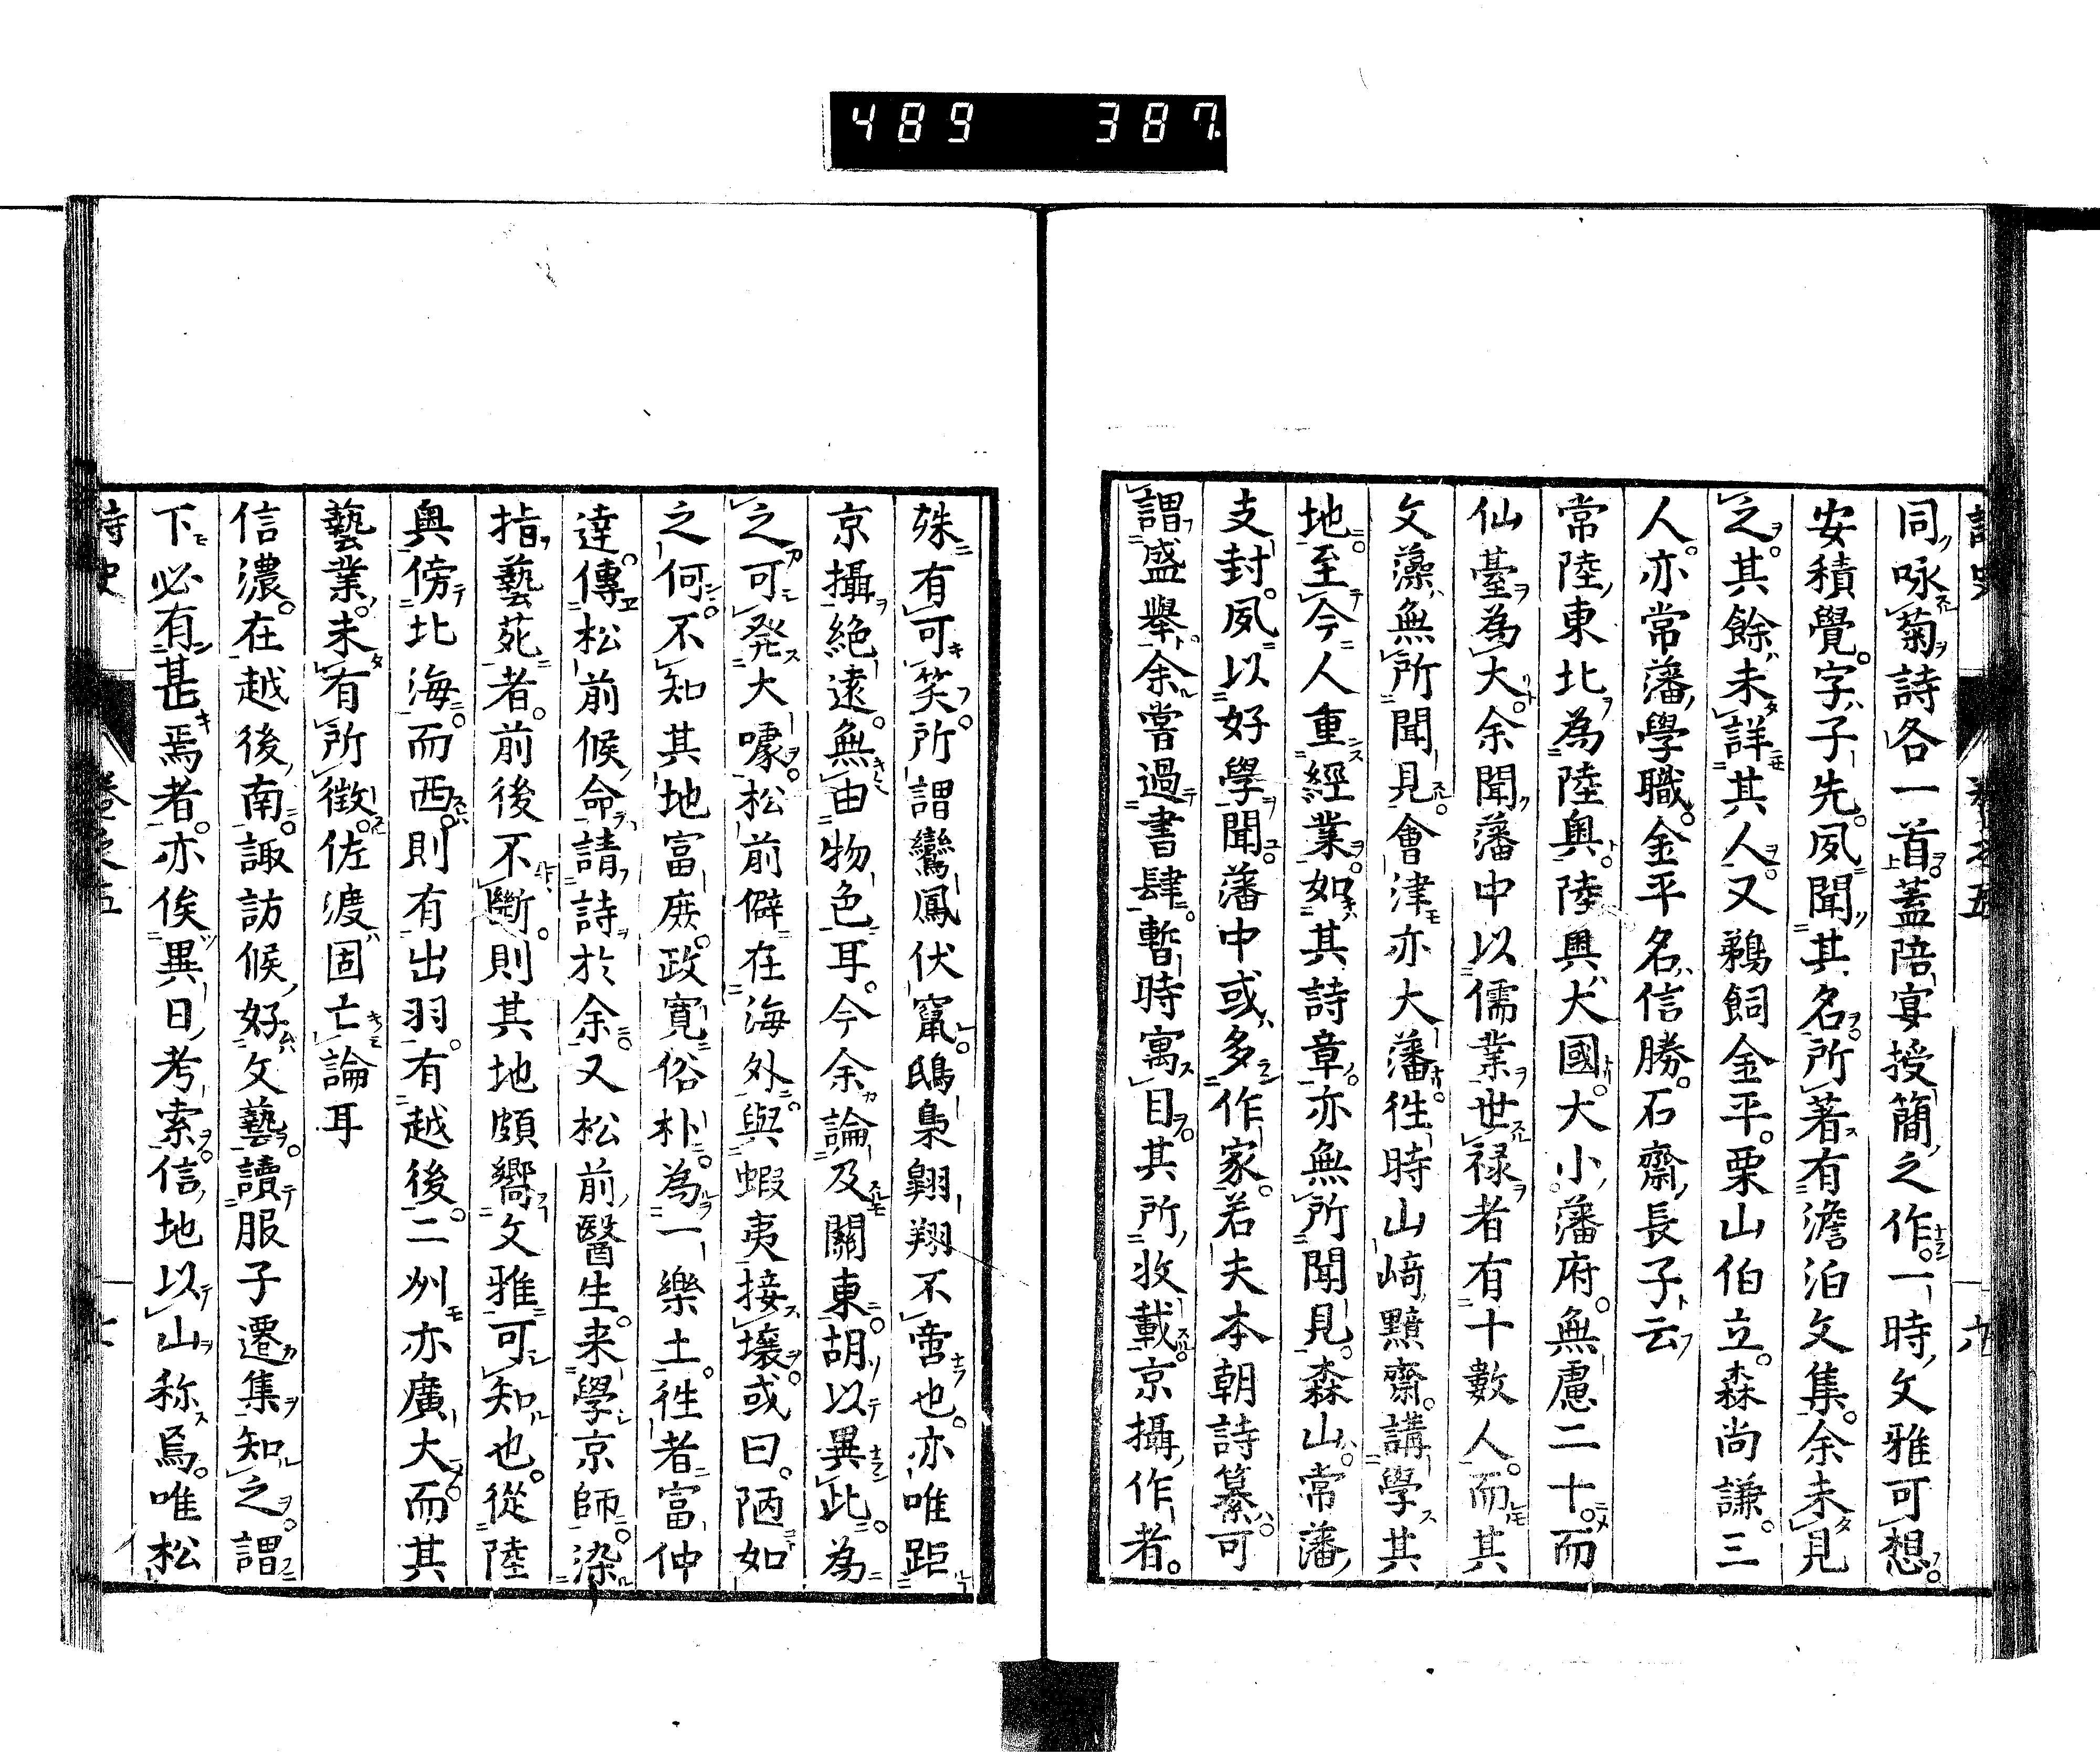 489 387
同咏菊詩各一首。蓋陪宴授簡之作。一時文雅可想。
安積覺。字子先。夙聞其名。所著有澹泊文集。余未見
之。其餘未詳其人。又鵜飼金平。栗山伯立。森尚謙。三
人。亦常藩學職。金平名信勝。石齋長子云
常陸東北為陸奥。陸奥大國。大小藩府。無慮二十。而
仙臺為大。余聞藩中以儒業世禄者有十數人。而其
文藻無所聞見。會津亦大藩。徃時山﨑黯齋。講學其
地。至今人重經業。如其詩章。亦無所聞見。森山。常藩
支封。夙以好學聞。藩中或多作家。若夫本朝詩纂。可
謂盛舉。余嘗過書肆。暫時寓目。其所收載京攝作者。
殊有可笑。所謂鸞鳳伏竄。鴟梟翺翔。不啻也。亦唯距
京攝絶遠。無由物色耳。今余論及關東。胡以異此。為
之可發大噱。松前僻在海外。與蝦夷接壤。或曰。陋如
之何。不知其地富庶。政寛俗朴。為一樂土。徃者富伸
達。傳松前候命。請詩於余。又松前醫生。来學京師。染
指藝苑者。前後不斷。則其地頗嚮文雅可知也。從陸
奥傍北海。而西。則有出羽。有越後。二州亦廣大。而其
藝業。未有所徴。佐渡固亡論耳
信濃。在越後南。諏訪候。好文藝。讀服子遷集知之。謂
下必有甚焉者。亦俟異日考索。信地以山称焉。唯松
詩史 卷之五 六
詩史 卷之五 七